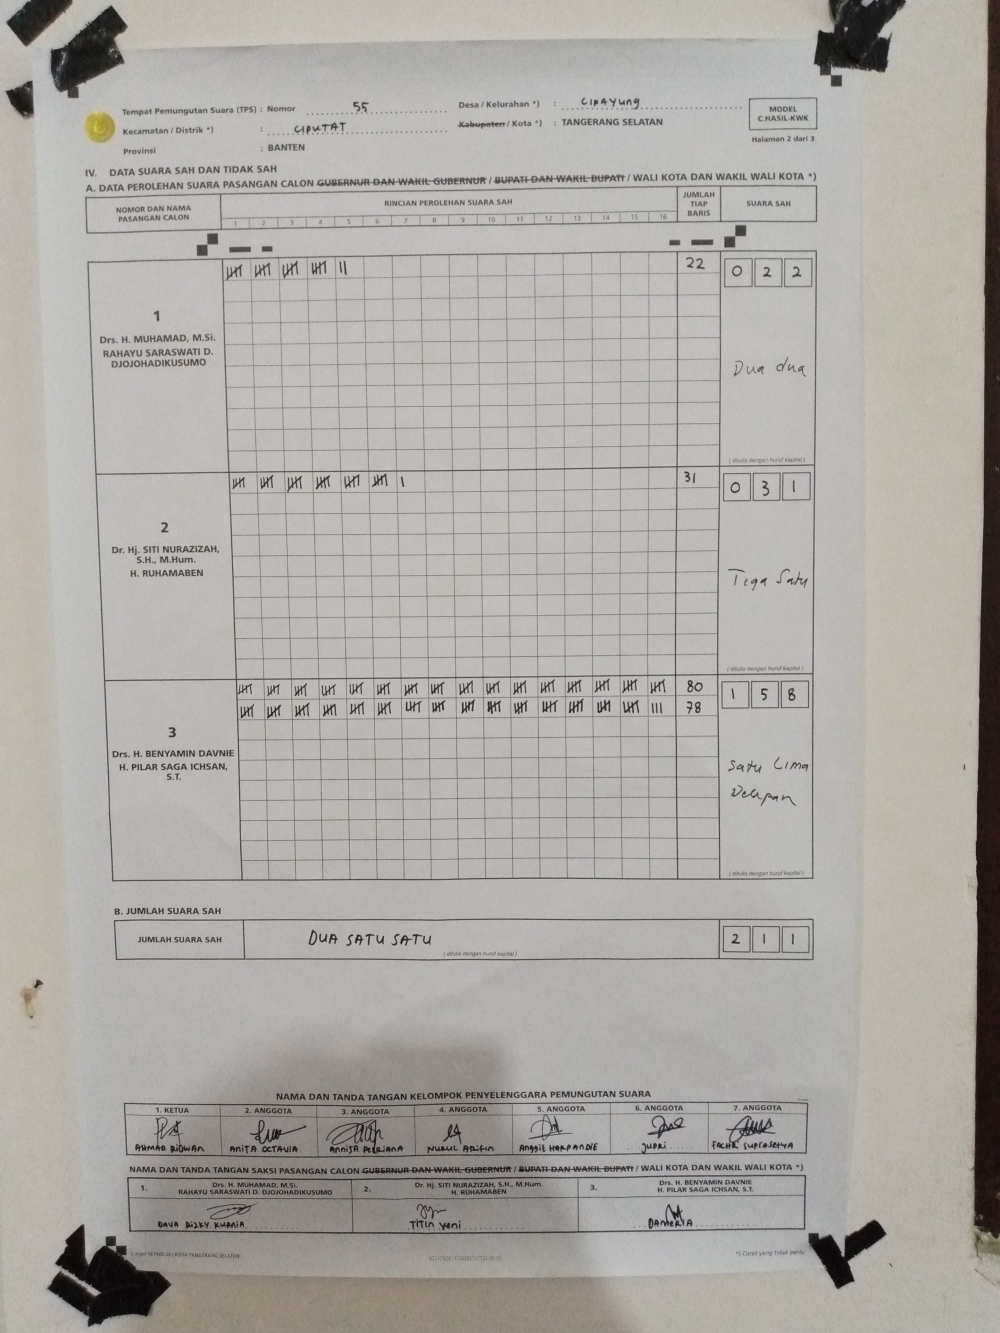 Tempat Pemungutan Suara (TPS) : Nomor 55
Desa / Kelurahan *) : CIPAYUNG
Kecamatan / Distrik *) : CIPUTAT
Kabupaten / Kota *) : TANGERANG SELATAN
Provinsi : BANTEN
MODEL
C.HASIL-KWK
Halaman 2 dari 3
IV. DATA SUARA SAH DAN TIDAK SAH
A. DATA PEROLEHAN SUARA PASANGAN CALON GUBERNUR DAN WAKIL GUBERNUR / BUPATI DAN WAKIL BUPATI / WALI KOTA DAN WAKIL WALI KOTA *)
NOMOR DAN NAMA PASANGAN CALON
RINCIAN PEROLEHAN SUARA SAH
1 2 3 4 5 6 7 8 9 10 11 12 13 14 15 16
JUMLAH TIAP BARIS
SUARA SAH
1
Drs. H. MUHAMAD, M.Si.
RAHAYU SARASWATI D.
DJOJOHADIKUSUMO
22
0 2 2
Dua dua
( ditulis dengan huruf kapital )
2
Dr. Hj. SITI NURAZIZAH,
S.H., M.Hum.
H. RUHAMABEN
31
0 3 1
Tiga Satu
( ditulis dengan huruf kapital )
3
Drs. H. BENYAMIN DAVNIE
H. PILAR SAGA ICHSAN,
S.T.
80
78
1 5 8
Satu Lima
Delapan
( ditulis dengan huruf kapital )
B. JUMLAH SUARA SAH
JUMLAH SUARA SAH
DUA SATU SATU
( ditulis dengan huruf kapital )
2 1 1
NAMA DAN TANDA TANGAN KELOMPOK PENYELENGGARA PEMUNGUTAN SUARA
1. KETUA 2. ANGGOTA 3. ANGGOTA 4. ANGGOTA 5. ANGGOTA 6. ANGGOTA 7. ANGGOTA
AHMAD RIDWAN ANITA OCTAVIA ANNISA NURUL ARIFIN ANGGIE HARPANDIE JUPRI FACHRI
NAMA DAN TANDA TANGAN SAKSI PASANGAN CALON GUBERNUR DAN WAKIL GUBERNUR / BUPATI DAN WAKIL BUPATI / WALI KOTA DAN WAKIL WALI KOTA *)
1. Drs. H. MUHAMAD, M.Si.
RAHAYU SARASWATI D. DJOJOHADIKUSUMO
2. Dr. Hj. SITI NURAZIZAH, S.H., M.Hum.
H. RUHAMABEN
3. Drs. H. BENYAMIN DAVNIE
H. PILAR SAGA ICHSAN, S.T.
DAVA RIZKY KURNIA
TITIN YENI
KOTA TANGERANG SELATAN
*) Coret yang tidak perlu